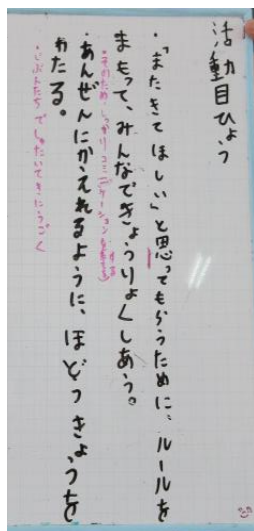 活動目ひょう
・「またきてほしい」と思ってもらうために、ルールを
まもって、みんなできょうりょくしあう。
・そのため、しっかりコミニケーションを
する
・あんぜんにかえれるように、ほどうきょうを
わたる。
・じぶんたちでしゅたいてきにうごく